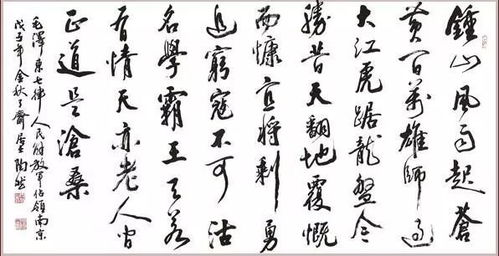 鍾山風雨起蒼
黄百萬雄師過
大江虎踞龍盤今
勝昔天翻地覆慨
而慷宜將剩勇
追窮寇不可沽
名學霸王天若
有情天亦老人间
正道是滄桑
毛澤東七律人民解放軍佔領南京
戊子年金秋